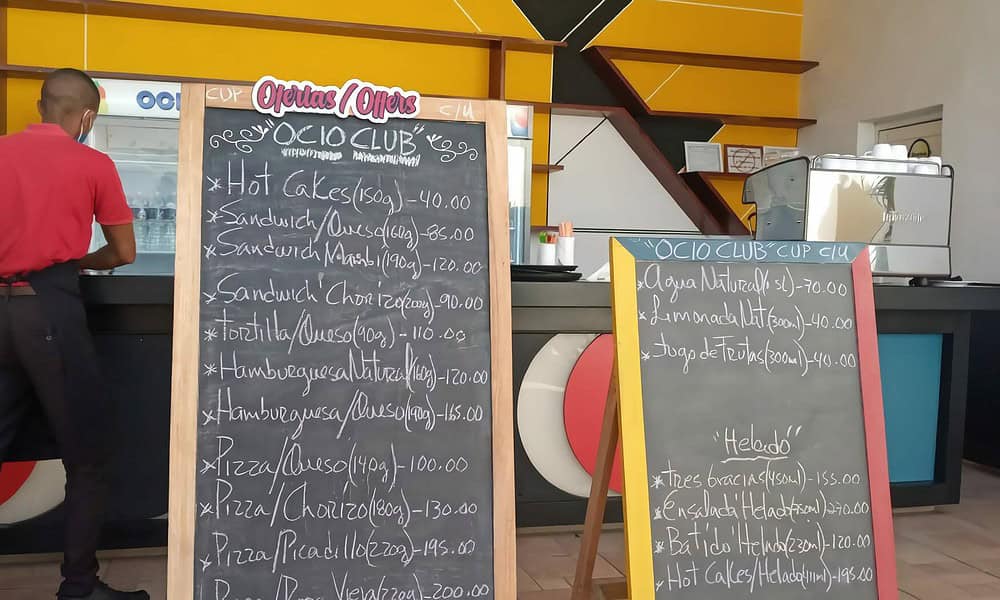 OCI
CUP Ofertas/Offers C/U
"OCIO CLUB"
*Hot Cakes(150g)-40.00
*Sandwich/Queso(160g)-85.00
*Sandwich (190g)-120.00
*Sandwich Chorizo(200g)-90.00
*Tortilla/Queso(90g)-110.00
*Hamburguesa Natural(160g)-120.00
*Hamburguesa/Queso(190g)-165.00
*Pizza/Queso(140g)-100.00
*Pizza/Chorizo(180g)-130.00
*Pizza/Picadillo(220g)-195.00
Vieja(220g)-200.00
"OCIO CLUB" CUP C/U
*Agua Natural -70.00
*Limonada Nat(300ml)-40.00
*Jugo de Frutas(300ml)-40.00
"Helado"
*Tres Gracias(450ml)-155.00
*Ensalada Helado -270.00
*Batido Helado(230ml)-120.00
*Hot Cakes/Helado(411ml)-195.00